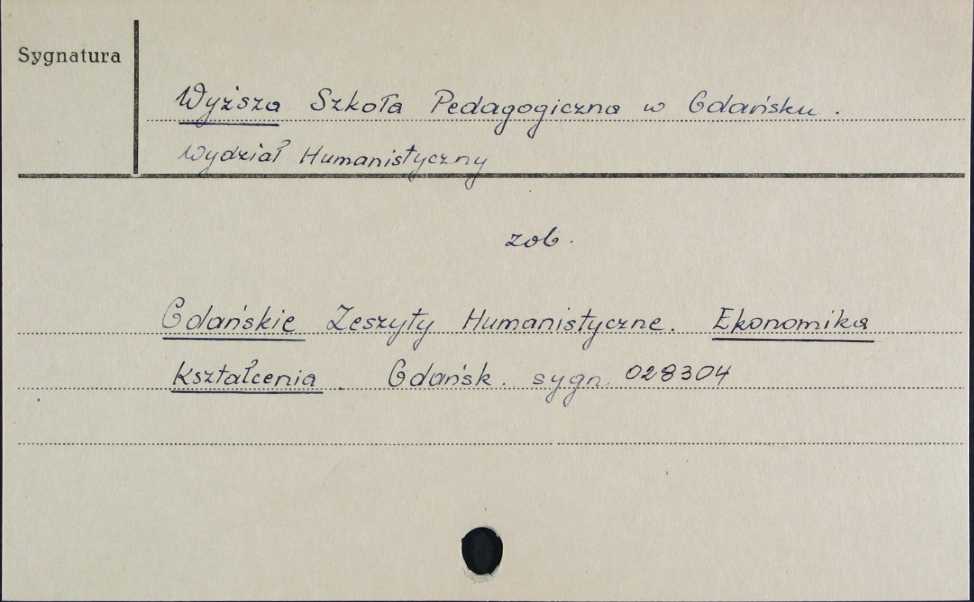 Sygnatura
Wyższa Szkoła Pedagogiczna w Gdańsku.
Wydział Humanistyczny
zob.
Gdańskie Zeszyty Humanistyczne. Ekonomika
Kształcenia. Gdańsk. sygn. 028304